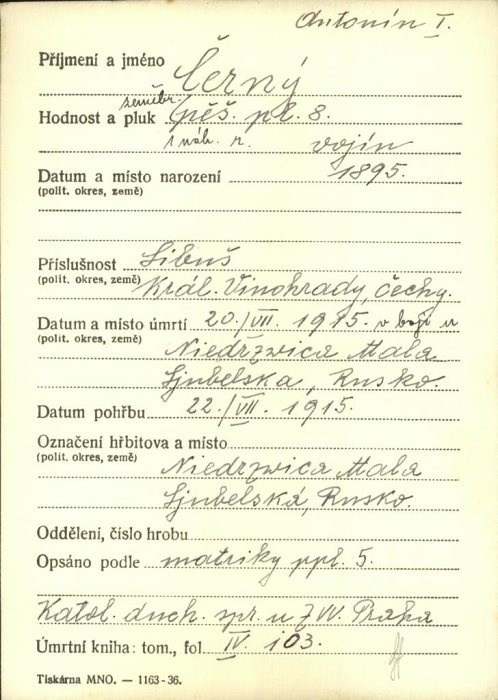 Antonín I.
Příjmení a jméno Černý
zeměbr.
Hodnost a pluk pěš. pl. 8.
1 náh. r. vojín
Datum a místo narození 1895.
(polit. okres, země)
Příslušnost Libuš
(polit. okres, země) Král. Vinohrady, Čechy.
Datum a místo úmrtí 20./VII. 1915. v boji u
(polit. okres, země) Niedrzwica Mala
Ljubelska, Rusko.
Datum pohřbu 22./VII. 1915.
Označení hřbitova a místo
(polit. okres, země) Niedrzwica Mala
Ljubelská, Rusko.
Oddělení, číslo hrobu
Opsáno podle matriky ppl. 5.
Katol. duch. spr. u ZVV. Praha
Úmrtní kniha: tom., fol IV. 103.
Tiskárna MNO. — 1163-36.